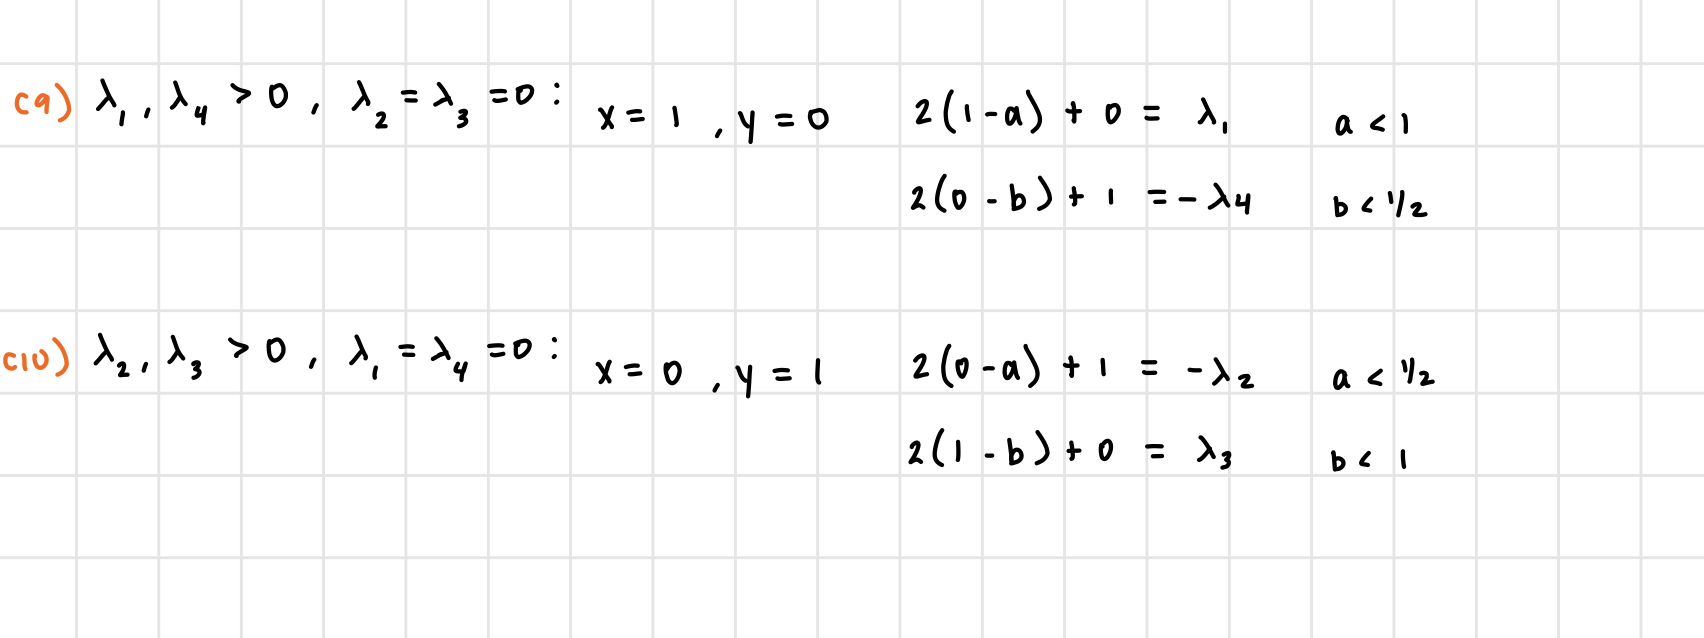 C9) λ₁, λ₄ > 0, λ₂ = λ₃ = 0: x = 1, y = 0 2(1-a) + 0 = λ₁ a < 1
2(0 - b) + 1 = -λ₄ b < 1/2
C10) λ₂, λ₃ > 0, λ₁ = λ₄ = 0: x = 0, y = 1 2(0-a) + 1 = -λ₂ a < 1/2
2(1 - b) + 0 = λ₃ b < 1